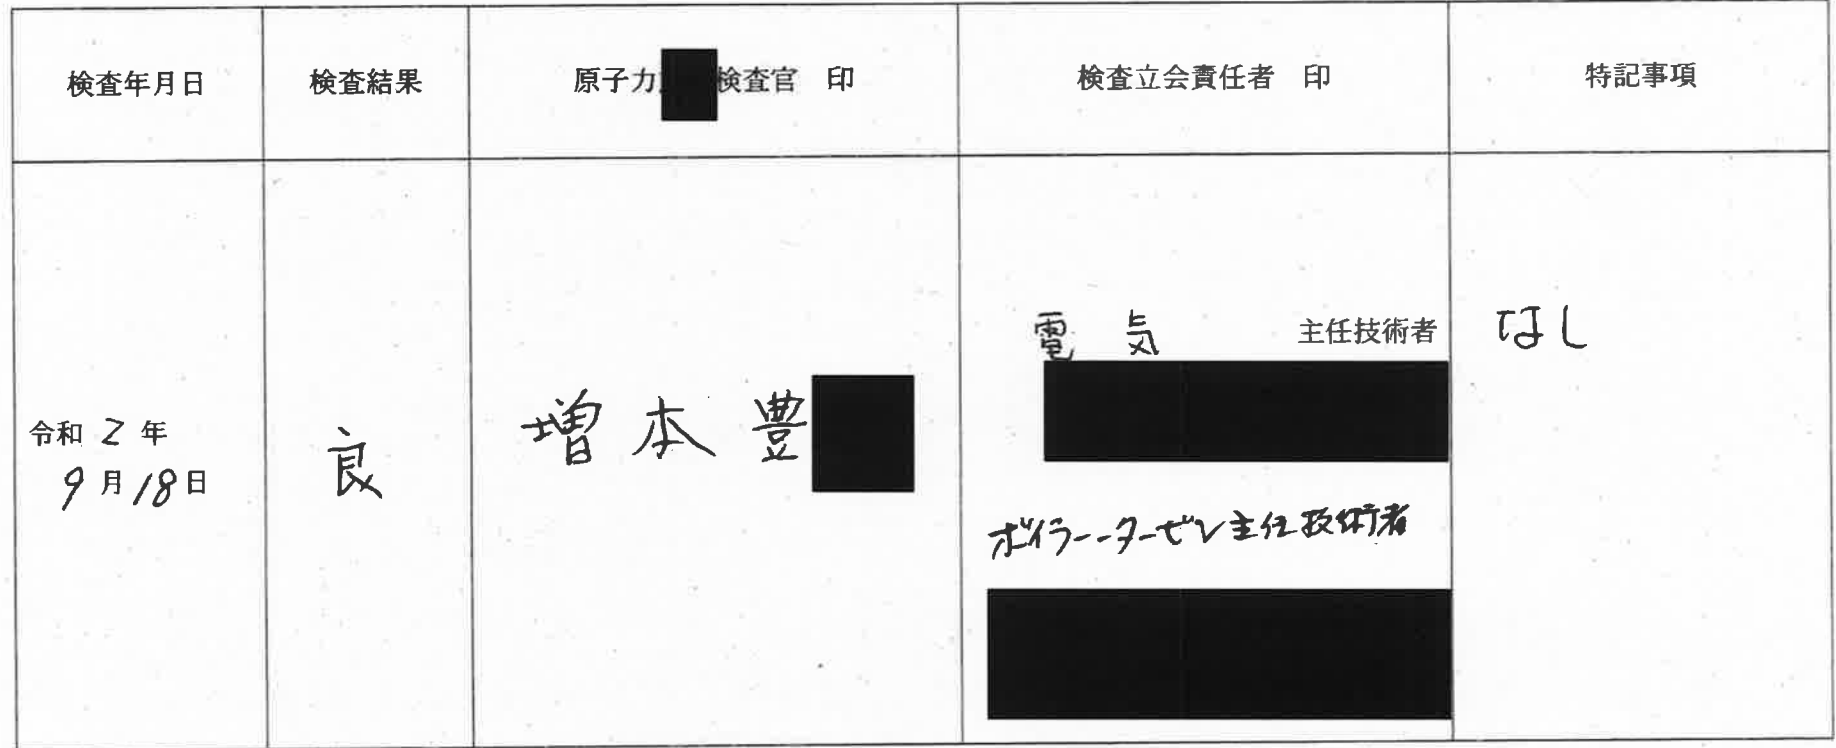 検査年月日
検査結果
原子力 検査官 印
検査立会責任者 印
特記事項
令和 2 年
9 月 18 日
良
増本豊
電気 主任技術者
ボイラー・タービン主任技術者
なし